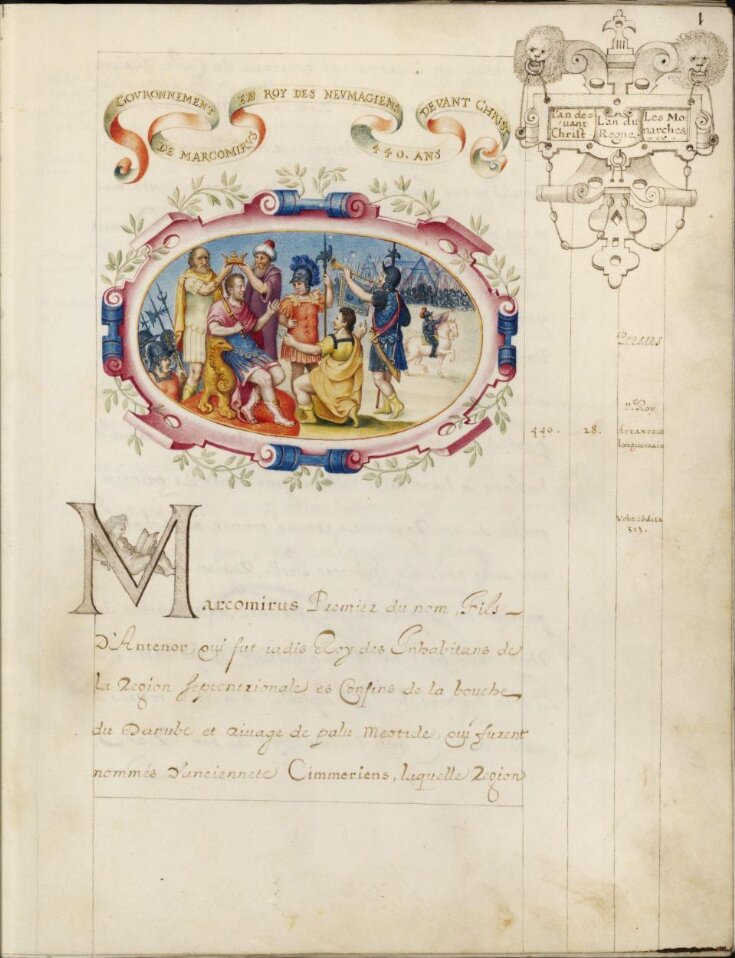 1
COVRONNEMENT
DE MARCOMIRVS
EN ROY DES NEVMAGIENS
440. ANS
DEVANT CHRIST
L'an de=
uant
Christ.
L'an du
Regne.
Les Mo
narches
Perses
7e Roy
440. 28. Artaxerce
longuemain
Vrbe cōdita
313.
Marcomirus Premier du nom, Fils
D'Antenor, qui fut iadis Roy des Inhabitans de
la Region septentrionale es Confins de la bouche
du Danube et riuage de palu Meotide, qui furent
nommés d'ancienneté Cimmeriens, laquelle Region